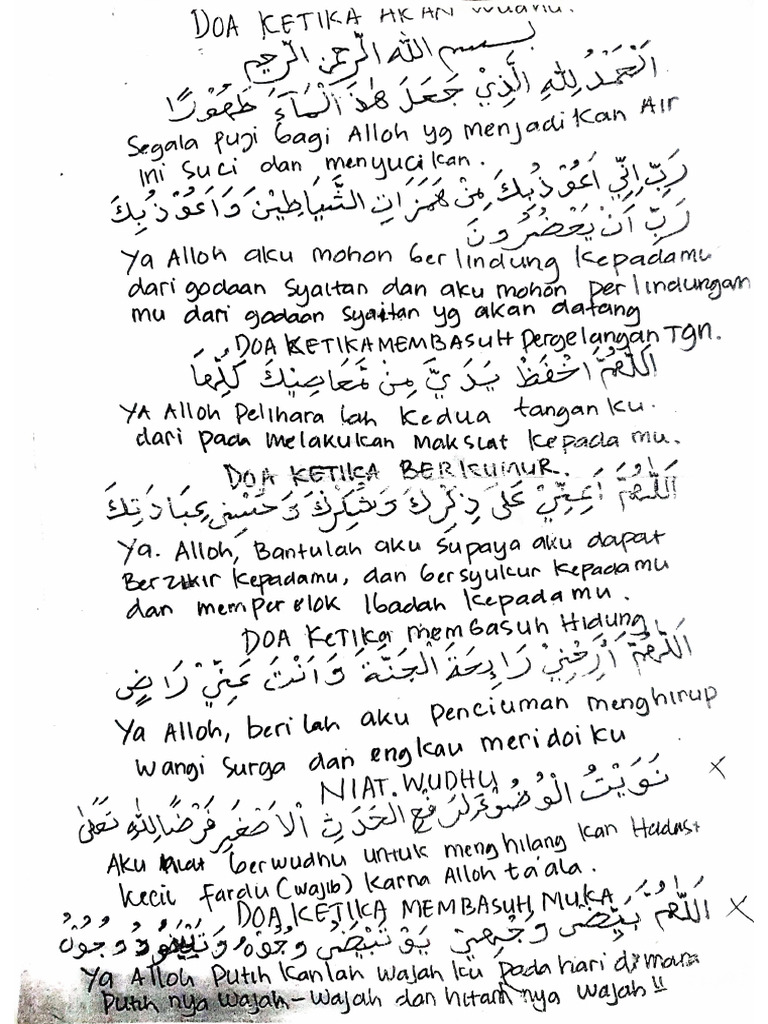 DOA KETIKA AKAN wudhu.
بسم الله الرّحمن الرّحيم
اَلْحَمْدُ لِلّٰهِ الَّذِيْ جَعَلَ هٰذَ الْمَآءَ طَهُوْرًا
Segala puji bagi Alloh yg menjadikan Air
ini suci dan menyucikan.
رَبِّ اِنِّي اَعُوْذُ بِكَ مِنْ هَمَزَاتِ الشَّيَاطِيْنَ وَاَعُوْذُ بِكَ
رَبِّ اَنْ يَحْضُرُوْنَ
Ya Alloh aku mohon berlindung kepadamu
dari godaan syaitan dan aku mohon perlindungan
mu dari godaan syaitan yg akan datang
DOA KETIKA MEMBASUH Pergelangan Tgn.
اَللّٰهُمَّ احْفَظْ يَدَيَّ مِنْ مَعَاصِيْكَ كُلِّهَا
YA Alloh Pelihara lah kedua tangan ku.
dari pada melakukan maksiat kepada mu.
DOA KETIKA BERKUMUR.
اَللّٰهُمَّ اَعِنِّيْ عَلَى ذِكْرِكَ وَشُكْرِكَ وَحُسْنِ عِبَادَتِكَ
Ya. Alloh, Bantulah aku supaya aku dapat
Berzikir kepadamu, dan bersyukur kepadamu
dan memperelok Ibadah kepadamu.
DOA KETIKA membasuh Hidung
اَللّٰهُمَّ أَرِحْنِيْ رَائِحَةَ الْجَنَّةَ وَاَنْتَ عَنِّيْ رَاضٍ
Ya Alloh, berilah aku penciuman menghirup
wangi surga dan engkau meridoiku
NIAT. WUDHU
نَوَيْتُ الْوُضُوْءَ لِرَفْعِ الْحَدَثِ الْاَصْغَرِ فَرْضًا لِلّٰهِ تَعَالَى
Aku niat berwudhu untuk menghilang kan Hadast
kecil fardu (wajib) karna Alloh ta'ala.
DOA KETIKA MEMBASUH MUKA
اَللّٰهُمَّ بَيِّضْ وَجْهِيْ يَوْمَ تَبْيَضُّ وُجُوْهٌ وَتَسْوَدُّ وُجُوْهٌ
Ya Alloh Putih kanlah wajah ku pada hari dimana
Putih nya wajah-wajah dan hitam nya wajah!!